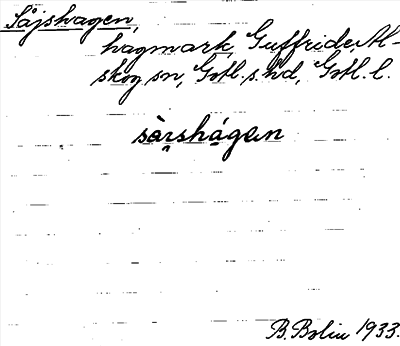 Såjshagen,
hagmark, Guffride, Al-
skog sn, Gotl. s. hd, Gotl. l.
sàrshágan
B. Bolin 1933.